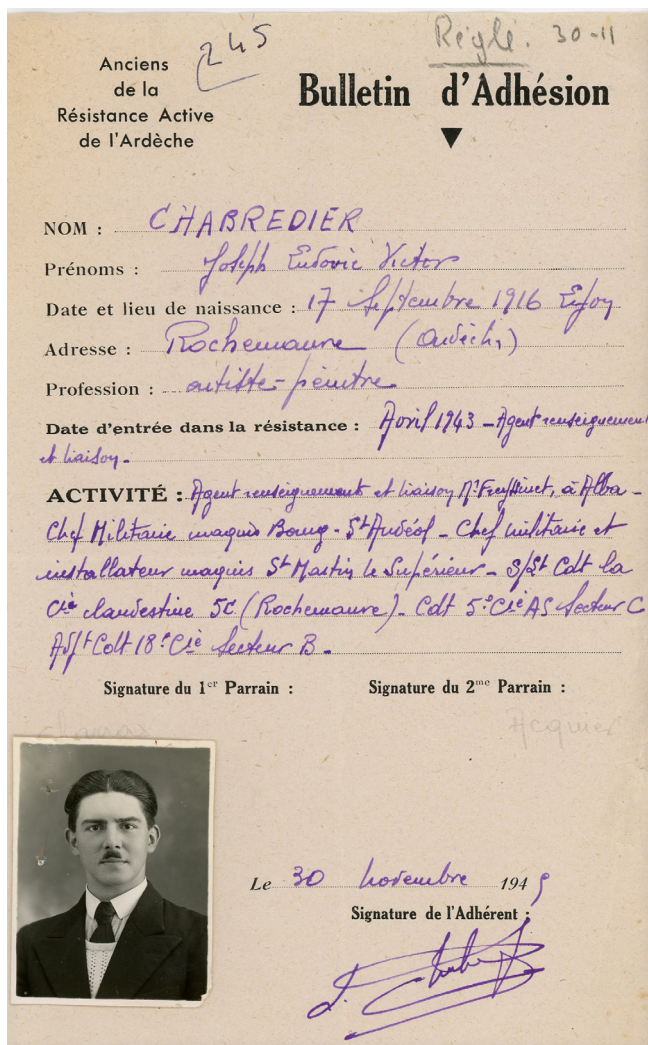 245
Réglé. 30-11
Anciens
de la
Résistance Active
de l'Ardèche
Bulletin d'Adhésion
NOM : CHABREDIER
Prénoms : Joseph Ludovic Victor
Date et lieu de naissance : 17 Septembre 1916
Adresse : Rochemaure (Ardèche)
Profession : artiste-peintre
Date d'entrée dans la résistance : Avril 1943 - Agent renseignement
et liaison -
ACTIVITÉ : Agent renseignement et liaison Mr Freyssinet, à Alba -
Chef Militaire maquis Bourg-St Andéol - Chef militaire et
installateur maquis St Martin le Supérieur - S/Lt Cdt la
Cie clandestine 5C (Rochemaure) - Cdt 5e Cie AS Secteur C
Adjt Cdt 18e Cie Secteur B -
Signature du 1er Parrain :
Signature du 2me Parrain :
Acquier
Le 30 novembre 1945
Signature de l'Adhérent :